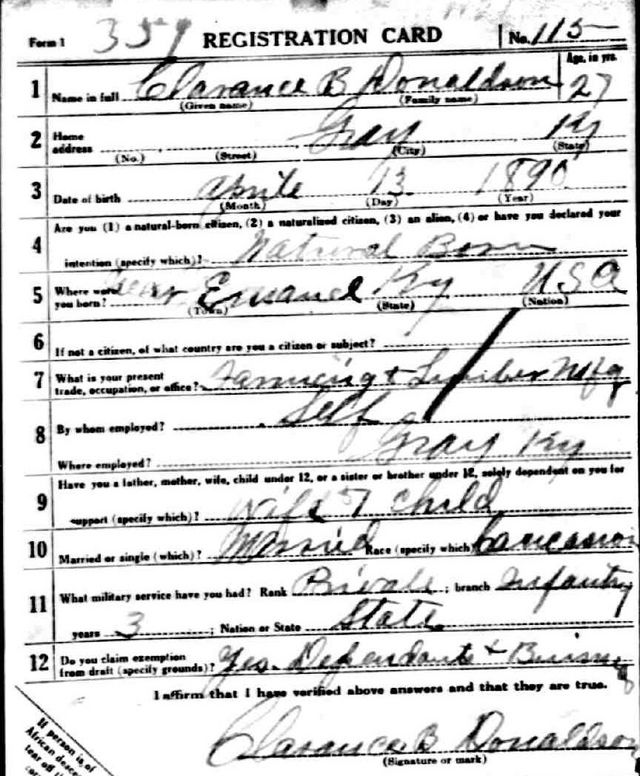 Form 1 359 REGISTRATION CARD No. 115
1 Name in full Clarance B Donaldson Age, in yrs. 27
(Given name) (Family name)
2 Home address Gray Ky
(No.) (Street) (City) (State)
3 Date of birth Aprile 13 1890
(Month) (Day) (Year)
4 Are you (1) a natural-born citizen, (2) a naturalized citizen, (3) an alien, (4) or have you declared your
intention (specify which)? Natural Born
5 Where were you born? near Emanuel Ky USA
(Town) (State) (Nation)
6 If not a citizen, of what country are you a citizen or subject?
7 What is your present trade, occupation, or office? Farming & Lumber Mfg
8 By whom employed? Self
Where employed? Gray Ky
9 Have you a father, mother, wife, child under 12, or a sister or brother under 12, solely dependent on you for
support (specify which)? Wife & 1 child
10 Married or single (which)? Married Race (specify which)? Caucasion
11 What military service have you had? Rank Private; branch Infantry
years 3; Nation or State State
12 Do you claim exemption from draft (specify grounds)? Yes. Dependants &
I affirm that I have verified above answers and that they are true.
Clarance B Donaldson
(Signature or mark)
If person is of
African
tear off